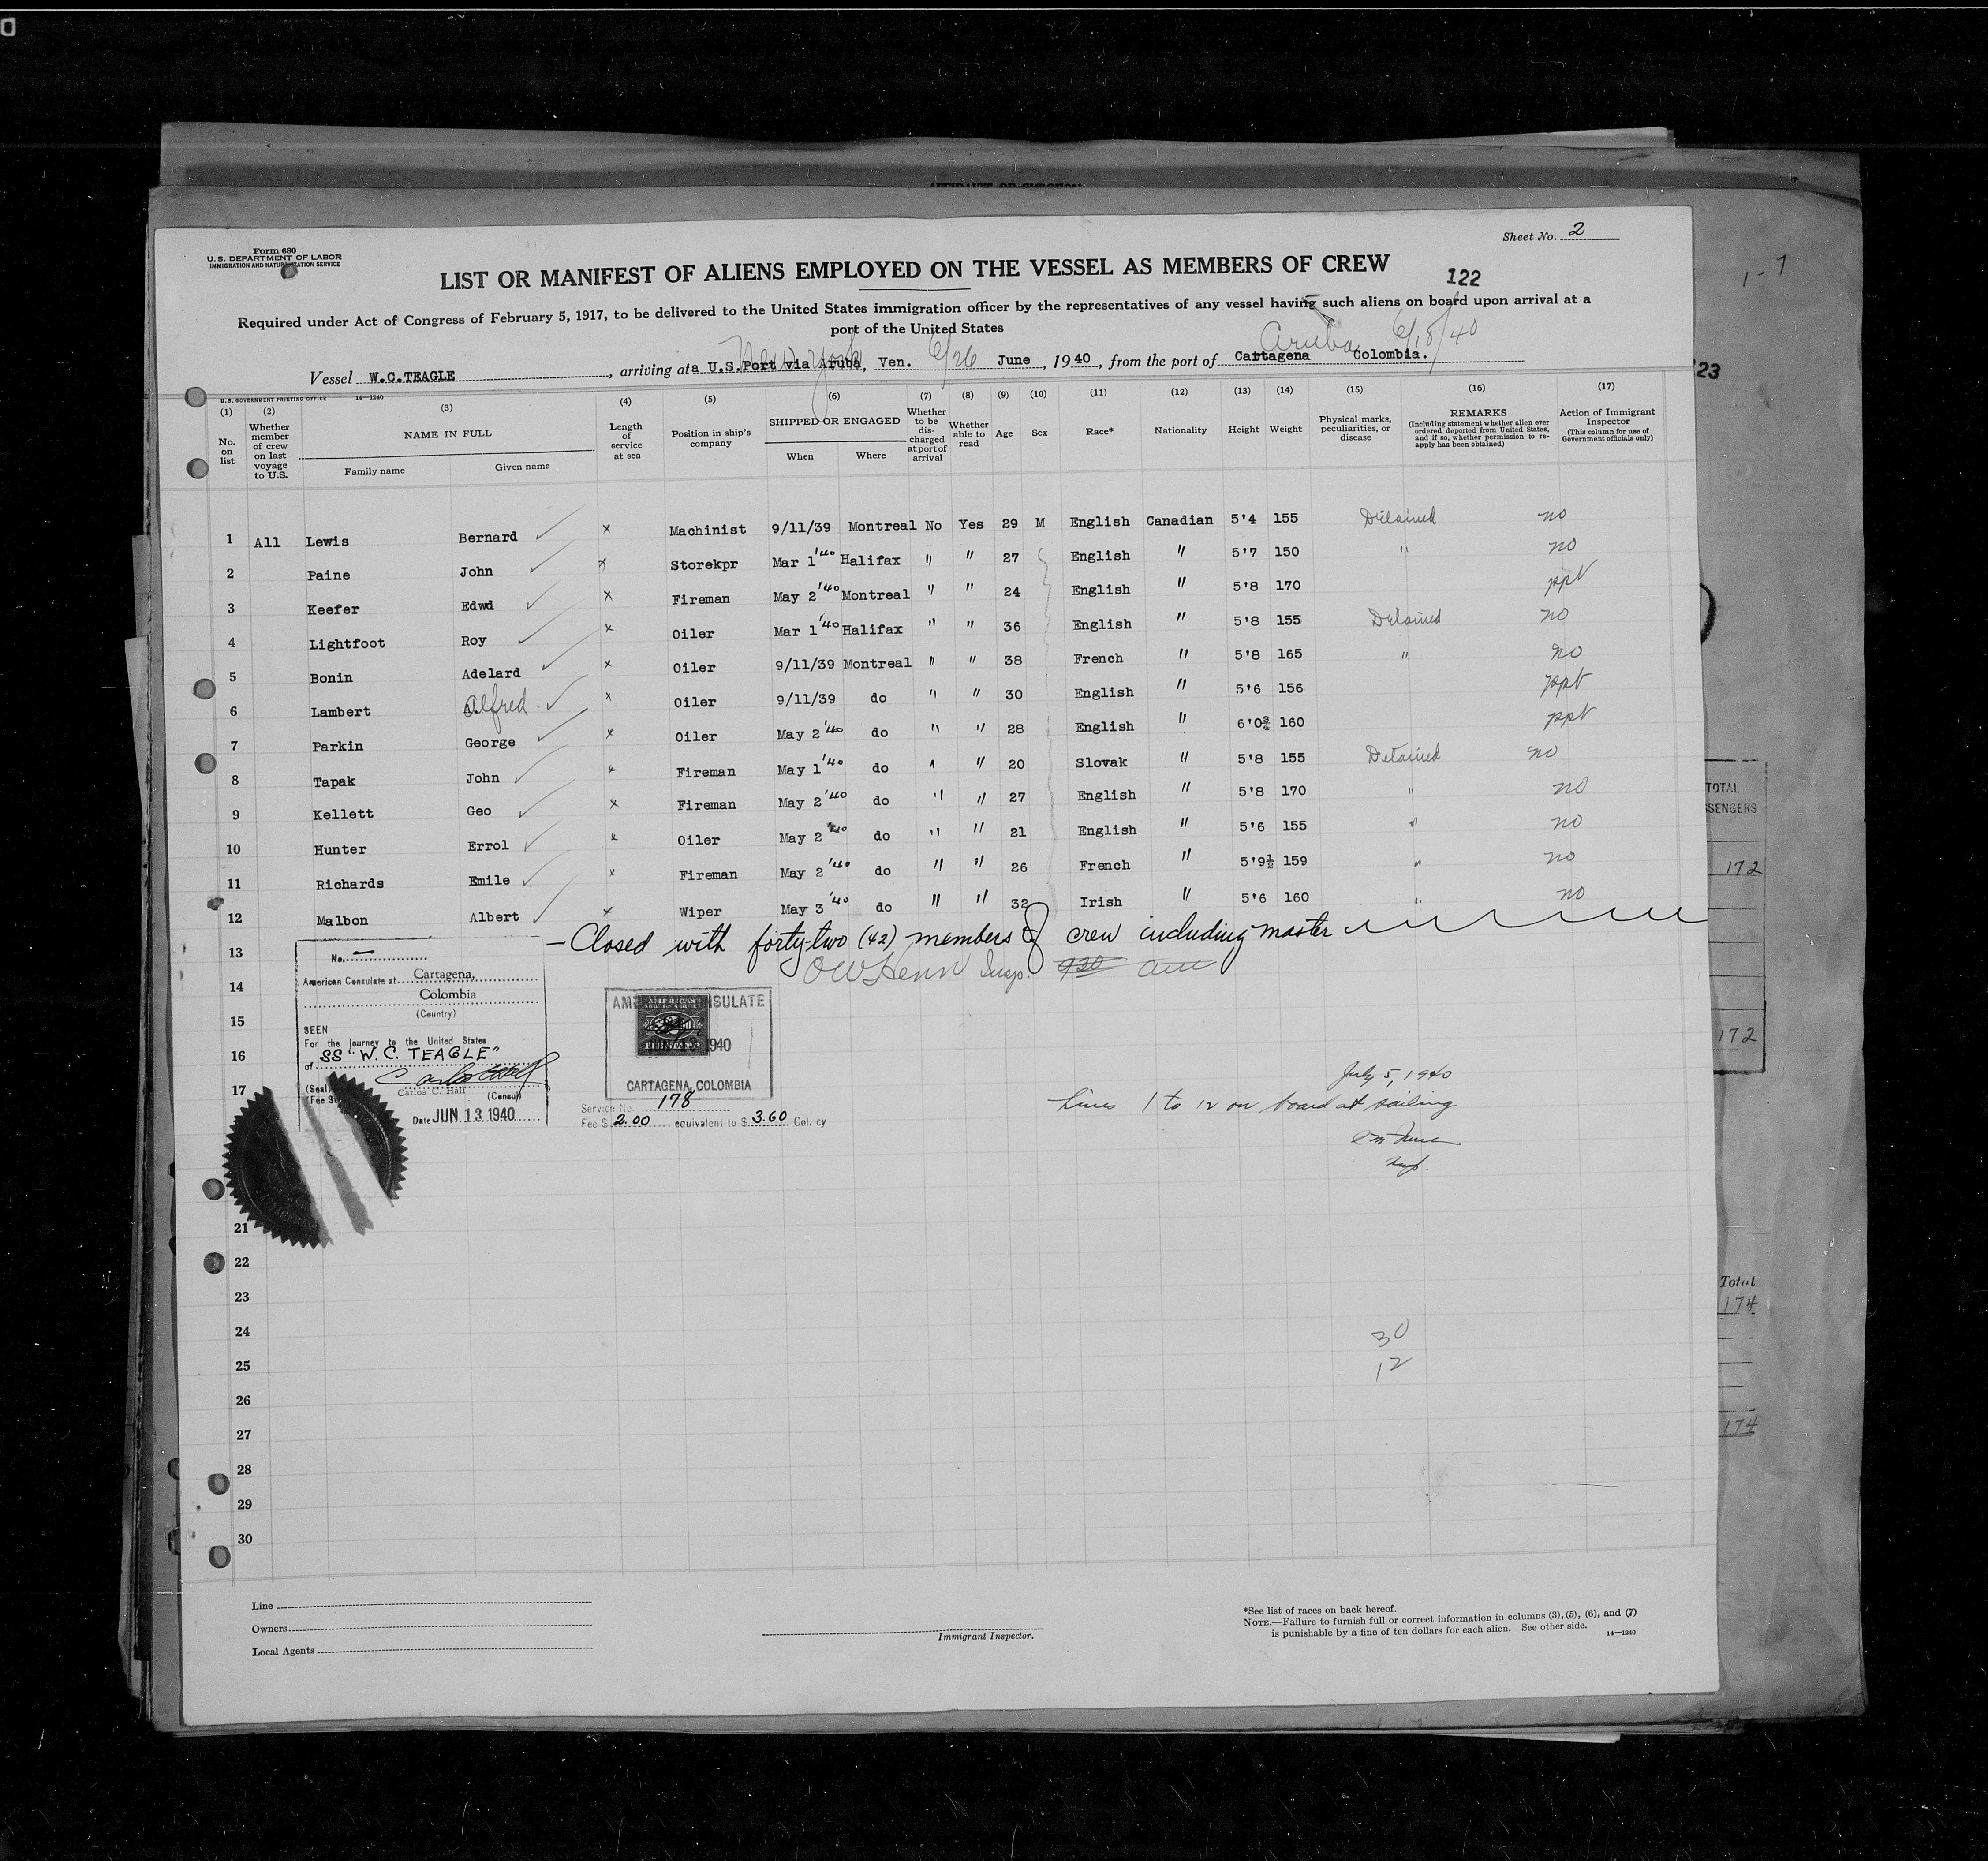 Form 680
U. S. DEPARTMENT OF LABOR
IMMIGRATION AND NATURALIZATION SERVICE
Sheet No. 2
LIST OR MANIFEST OF ALIENS EMPLOYED ON THE VESSEL AS MEMBERS OF CREW
122
Required under Act of Congress of February 5, 1917, to be delivered to the United States immigration officer by the representatives of any vessel having such aliens on board upon arrival at a
port of the United States
New York 6/26 Aruba 6/18/40
Vessel W.C.TEAGLE, arriving at a U.S.Port via Aruba, Ven. June, 1940, from the port of Cartagena Colombia.
U. S. GOVERNMENT PRINTING OFFICE 14—1240
(1) No. on list
(2) Whether member of crew on last voyage to U.S.
(3) NAME IN FULL Family name Given name
(4) Length of service at sea
(5) Position in ship's company
(6) SHIPPED OR ENGAGED When Where
(7) Whether to be discharged at port of arrival
(8) Whether able to read
(9) Age
(10) Sex
(11) Race*
(12) Nationality
(13) Height
(14) Weight
(15) Physical marks, peculiarities, or disease
(16) REMARKS (Including statement whether alien ever ordered deported from United States, and if so, whether permission to re-apply has been obtained)
(17) Action of Immigrant Inspector (This column for use of Government officials only)
1 All Lewis Bernard ✓ x Machinist 9/11/39 Montreal No Yes 29 M English Canadian 5'4 155 Detained no
2 Paine John ✓ x Storekpr Mar 1 '40 Halifax " " 27 English " 5'7 150 " no
3 Keefer Edwd ✓ x Fireman May 2 '40 Montreal " " 24 English " 5'8 170 ppt
4 Lightfoot Roy ✓ x Oiler Mar 1 '40 Halifax " " 36 English " 5'8 155 Detained no
5 Bonin Adelard ✓ x Oiler 9/11/39 Montreal " " 38 French " 5'8 165 " no
6 Lambert Alfred ✓ x Oiler 9/11/39 do " " 30 English " 5'6 156 ppt
7 Parkin George ✓ x Oiler May 2 '40 do " " 28 English " 6'0¾ 160 ppt
8 Tapak John ✓ x Fireman May 1 '40 do " " 20 Slovak " 5'8 155 Detained no
9 Kellett Geo ✓ x Fireman May 2 '40 do " " 27 English " 5'8 170 " no
10 Hunter Errol ✓ x Oiler May 2 '40 do " " 21 English " 5'6 155 " no
11 Richards Emile ✓ x Fireman May 2 '40 do " " 26 French " 5'9½ 159 " no
12 Malbon Albert ✓ x Wiper May 3 '40 do " " 32 Irish " 5'6 160 " no
— Closed with forty-two (42) members of crew including master
OW Henn Insp. 930 am
13
14
15
16
17
No. —
American Consulate at Cartagena,
Colombia
(Country)
SEEN
For the journey to the United States
of SS "W. C. TEAGLE"
(Seal) Carlos C. Hall
(Consul)
Date JUN 13 1940
1940
CARTAGENA, COLOMBIA
Service No. 178
Fee $ 2.00 equivalent to $ 3.60 Col. cy
July 5, 1940
Lines 1 to 12 on board at sailing
Insp.
21
22
23
24
25
26
27
28
29
30
30
12
Line
Owners
Local Agents
Immigrant Inspector.
*See list of races on back hereof.
NOTE.—Failure to furnish full or correct information in columns (3), (5), (6), and (7)
is punishable by a fine of ten dollars for each alien. See other side. 14—1240
1-7
23
TOTAL
172
172
Total
174
174